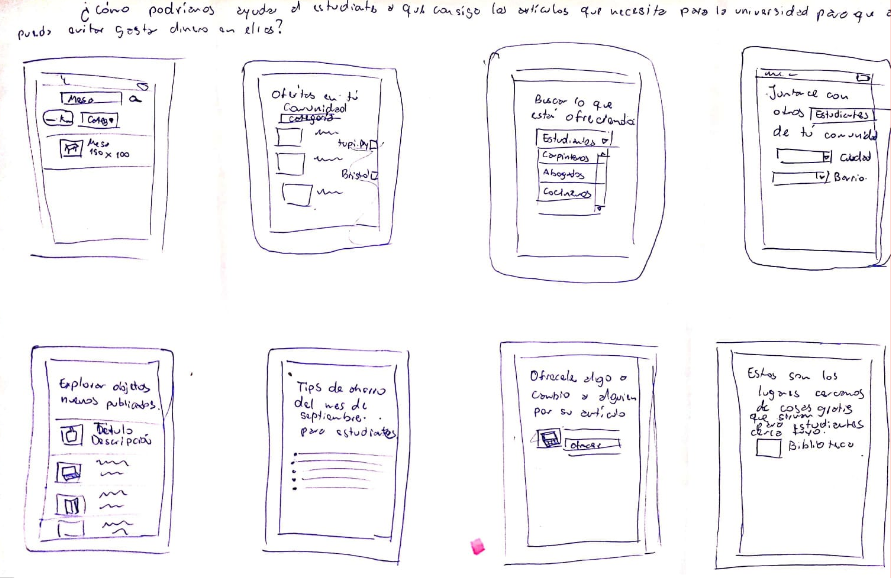 ¿cómo podríamos ayudar al estudiante a que consiga los artículos que necesita para la universidad para que
pueda evitar gastar dinero en ellos?
Mesa
Catego
Mesa
150 x 100
Ofertas en tú
Comunidad
categoría
Buscar lo que
está ofreciendo
Estudiantes
Carpinteros
Abogados
Cocineros
Juntace con
otros Estudiantes
de tú comunidad
Ciudad
Barrio
Explorar objetos
nuevos publicados.
Título
Descripción
Tips de ahorro
del mes de
septiembre.
para estudiantes
Ofrecele algo a
cambio a alguien
por su artículo
ofrecer
Estos son los
lugares cercanos
de cosas gratis
que sirvan
para estudiantes
cerca tuyo.
Biblioteca